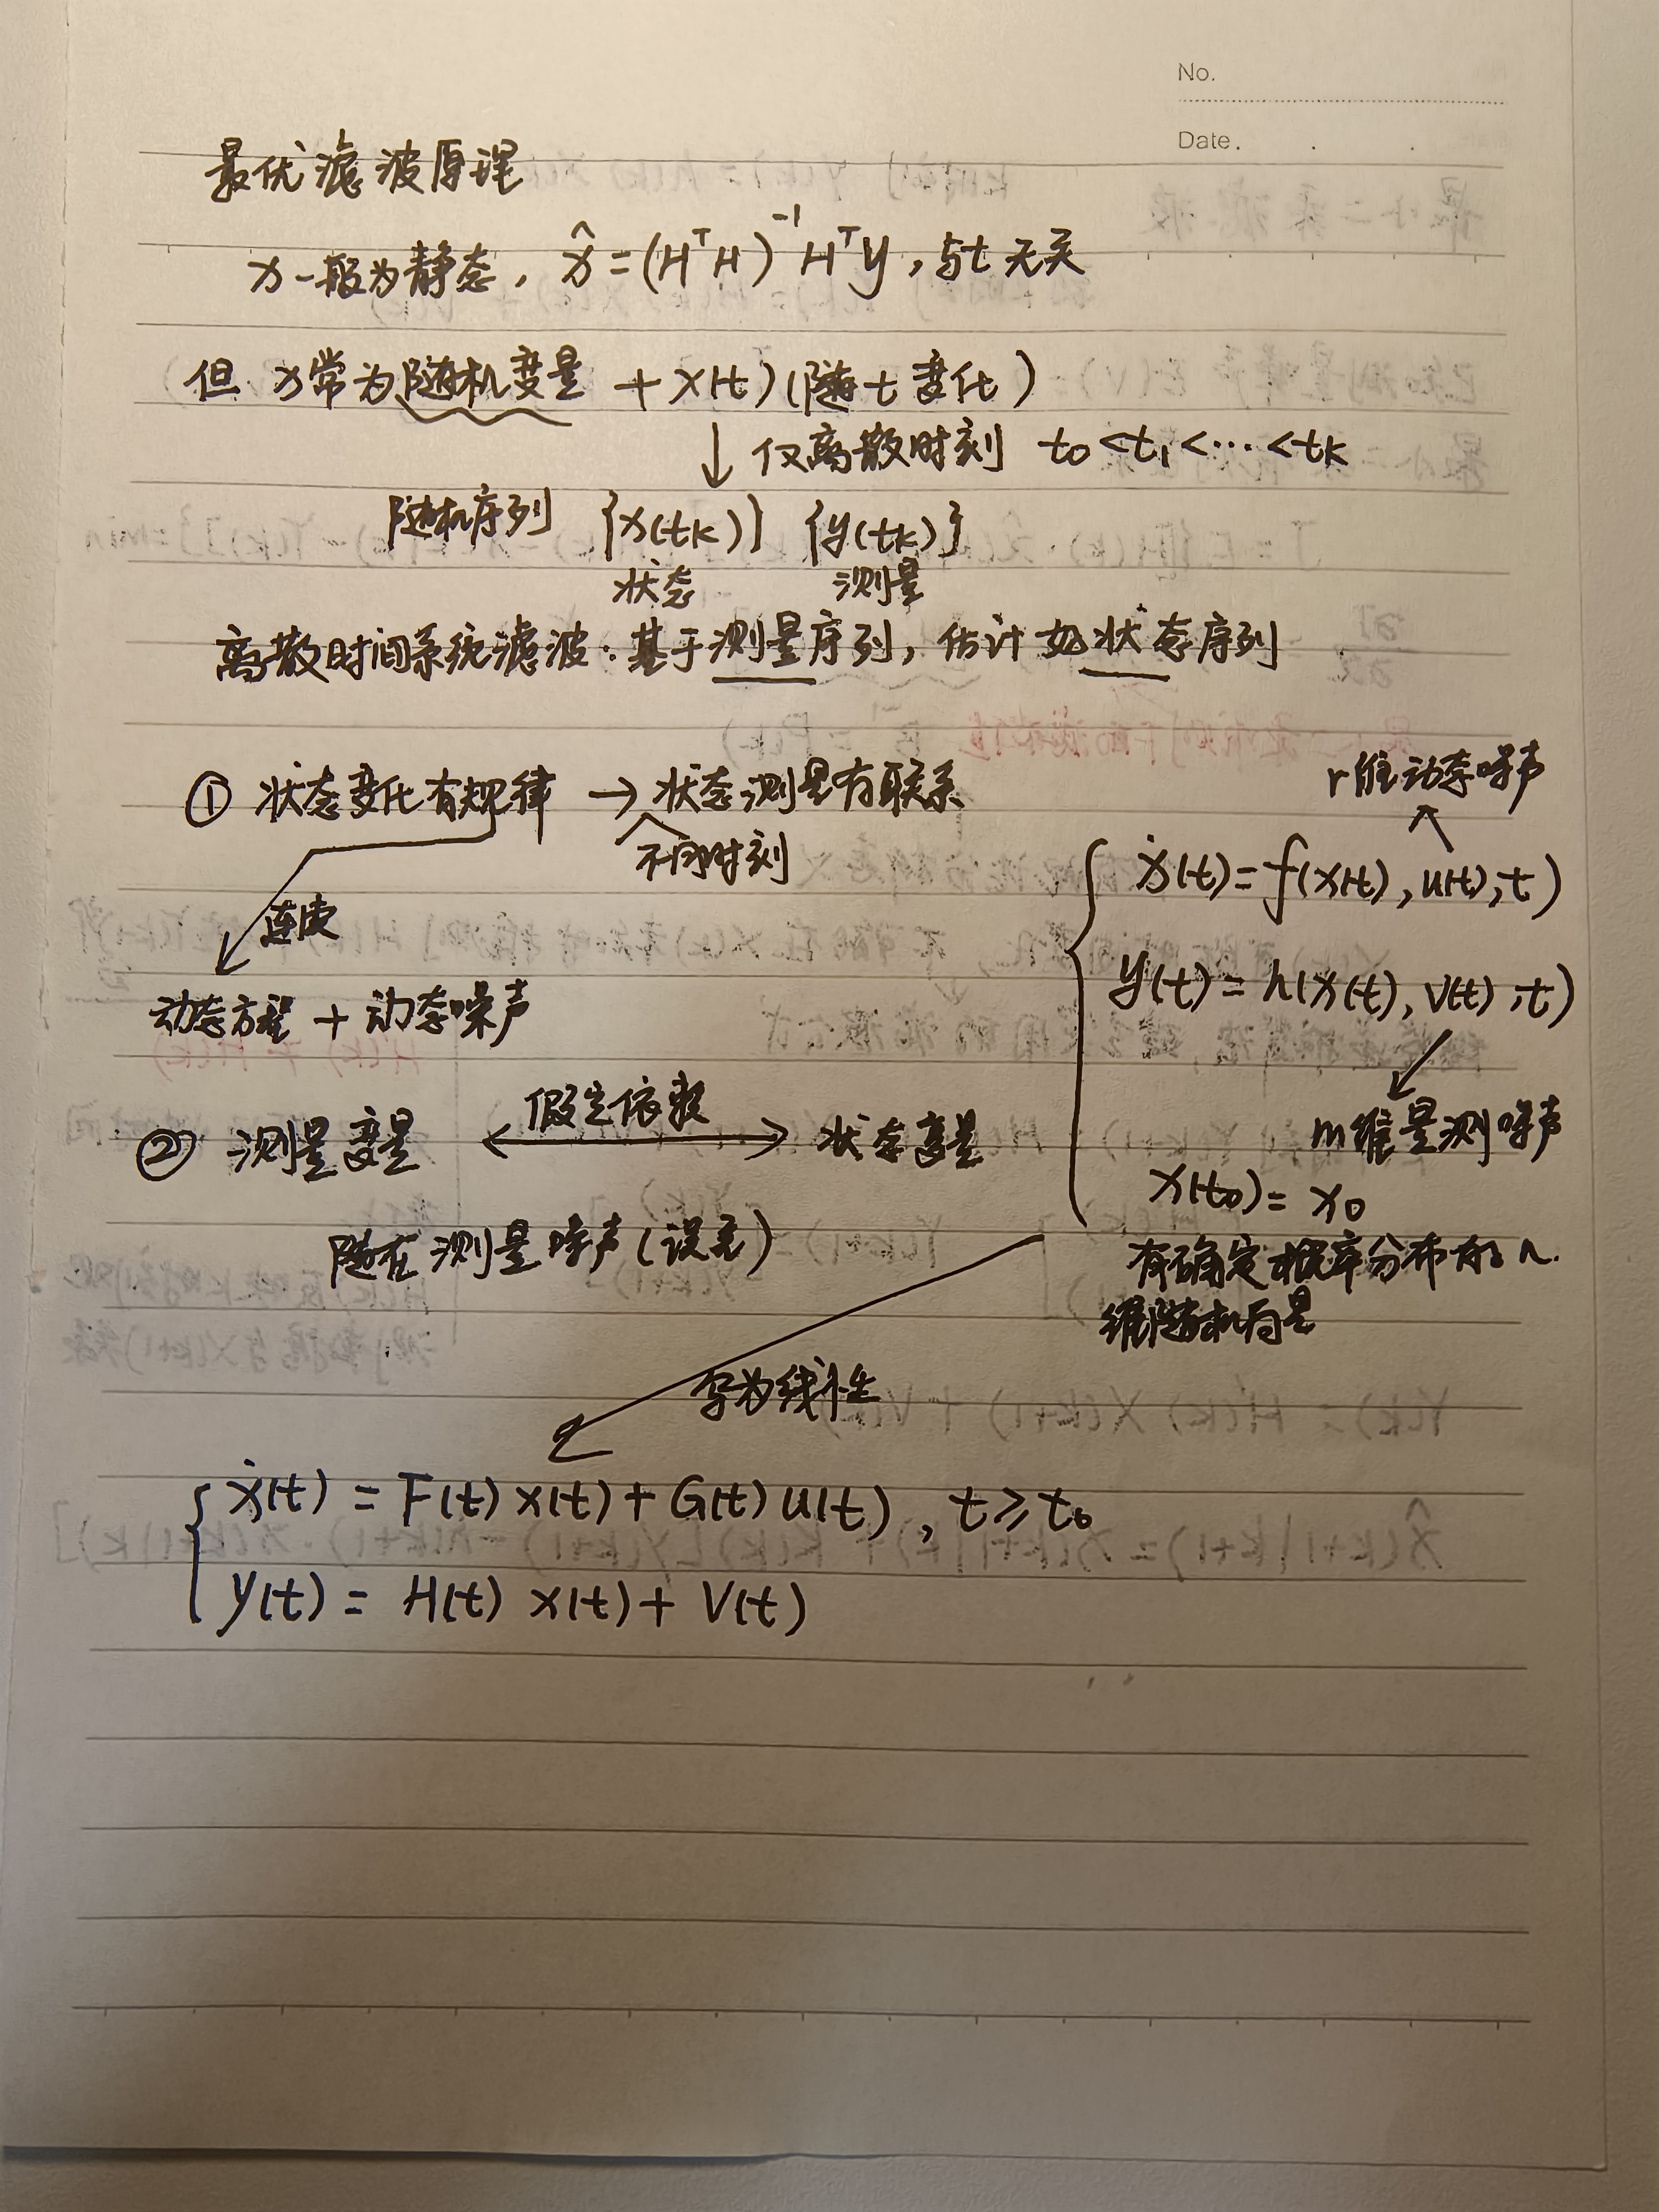 No.
Date.
最优滤波原理
x一般为静态, x̂=(HᵀH)⁻¹Hᵀy, 与t无关
但 x常为随机变量 + x(t)(随t变化)
↓ 仅离散时刻 t₀<t₁<…<tₖ
随机序列 {x(tₖ)} {y(tₖ)}
状态 测量
离散时间系统滤波:基于测量序列, 估计 状态序列
① 状态变化有规律 → 状态测量有联系
不同时刻
连续
动态方程 + 动态噪声
r维动态噪声
ẋ(t)=f(x(t),u(t),t)
y(t)=h(x(t),v(t),t)
m维量测噪声
x(t₀)=x₀
有确定概率分布的n
维随机向量
② 测量变量 ⟷ 状态变量
假定依赖
测量噪声(误差)
写为线性
ẋ(t) = F(t) x(t) + G(t) u(t), t≥t₀
y(t) = H(t) x(t) + V(t)